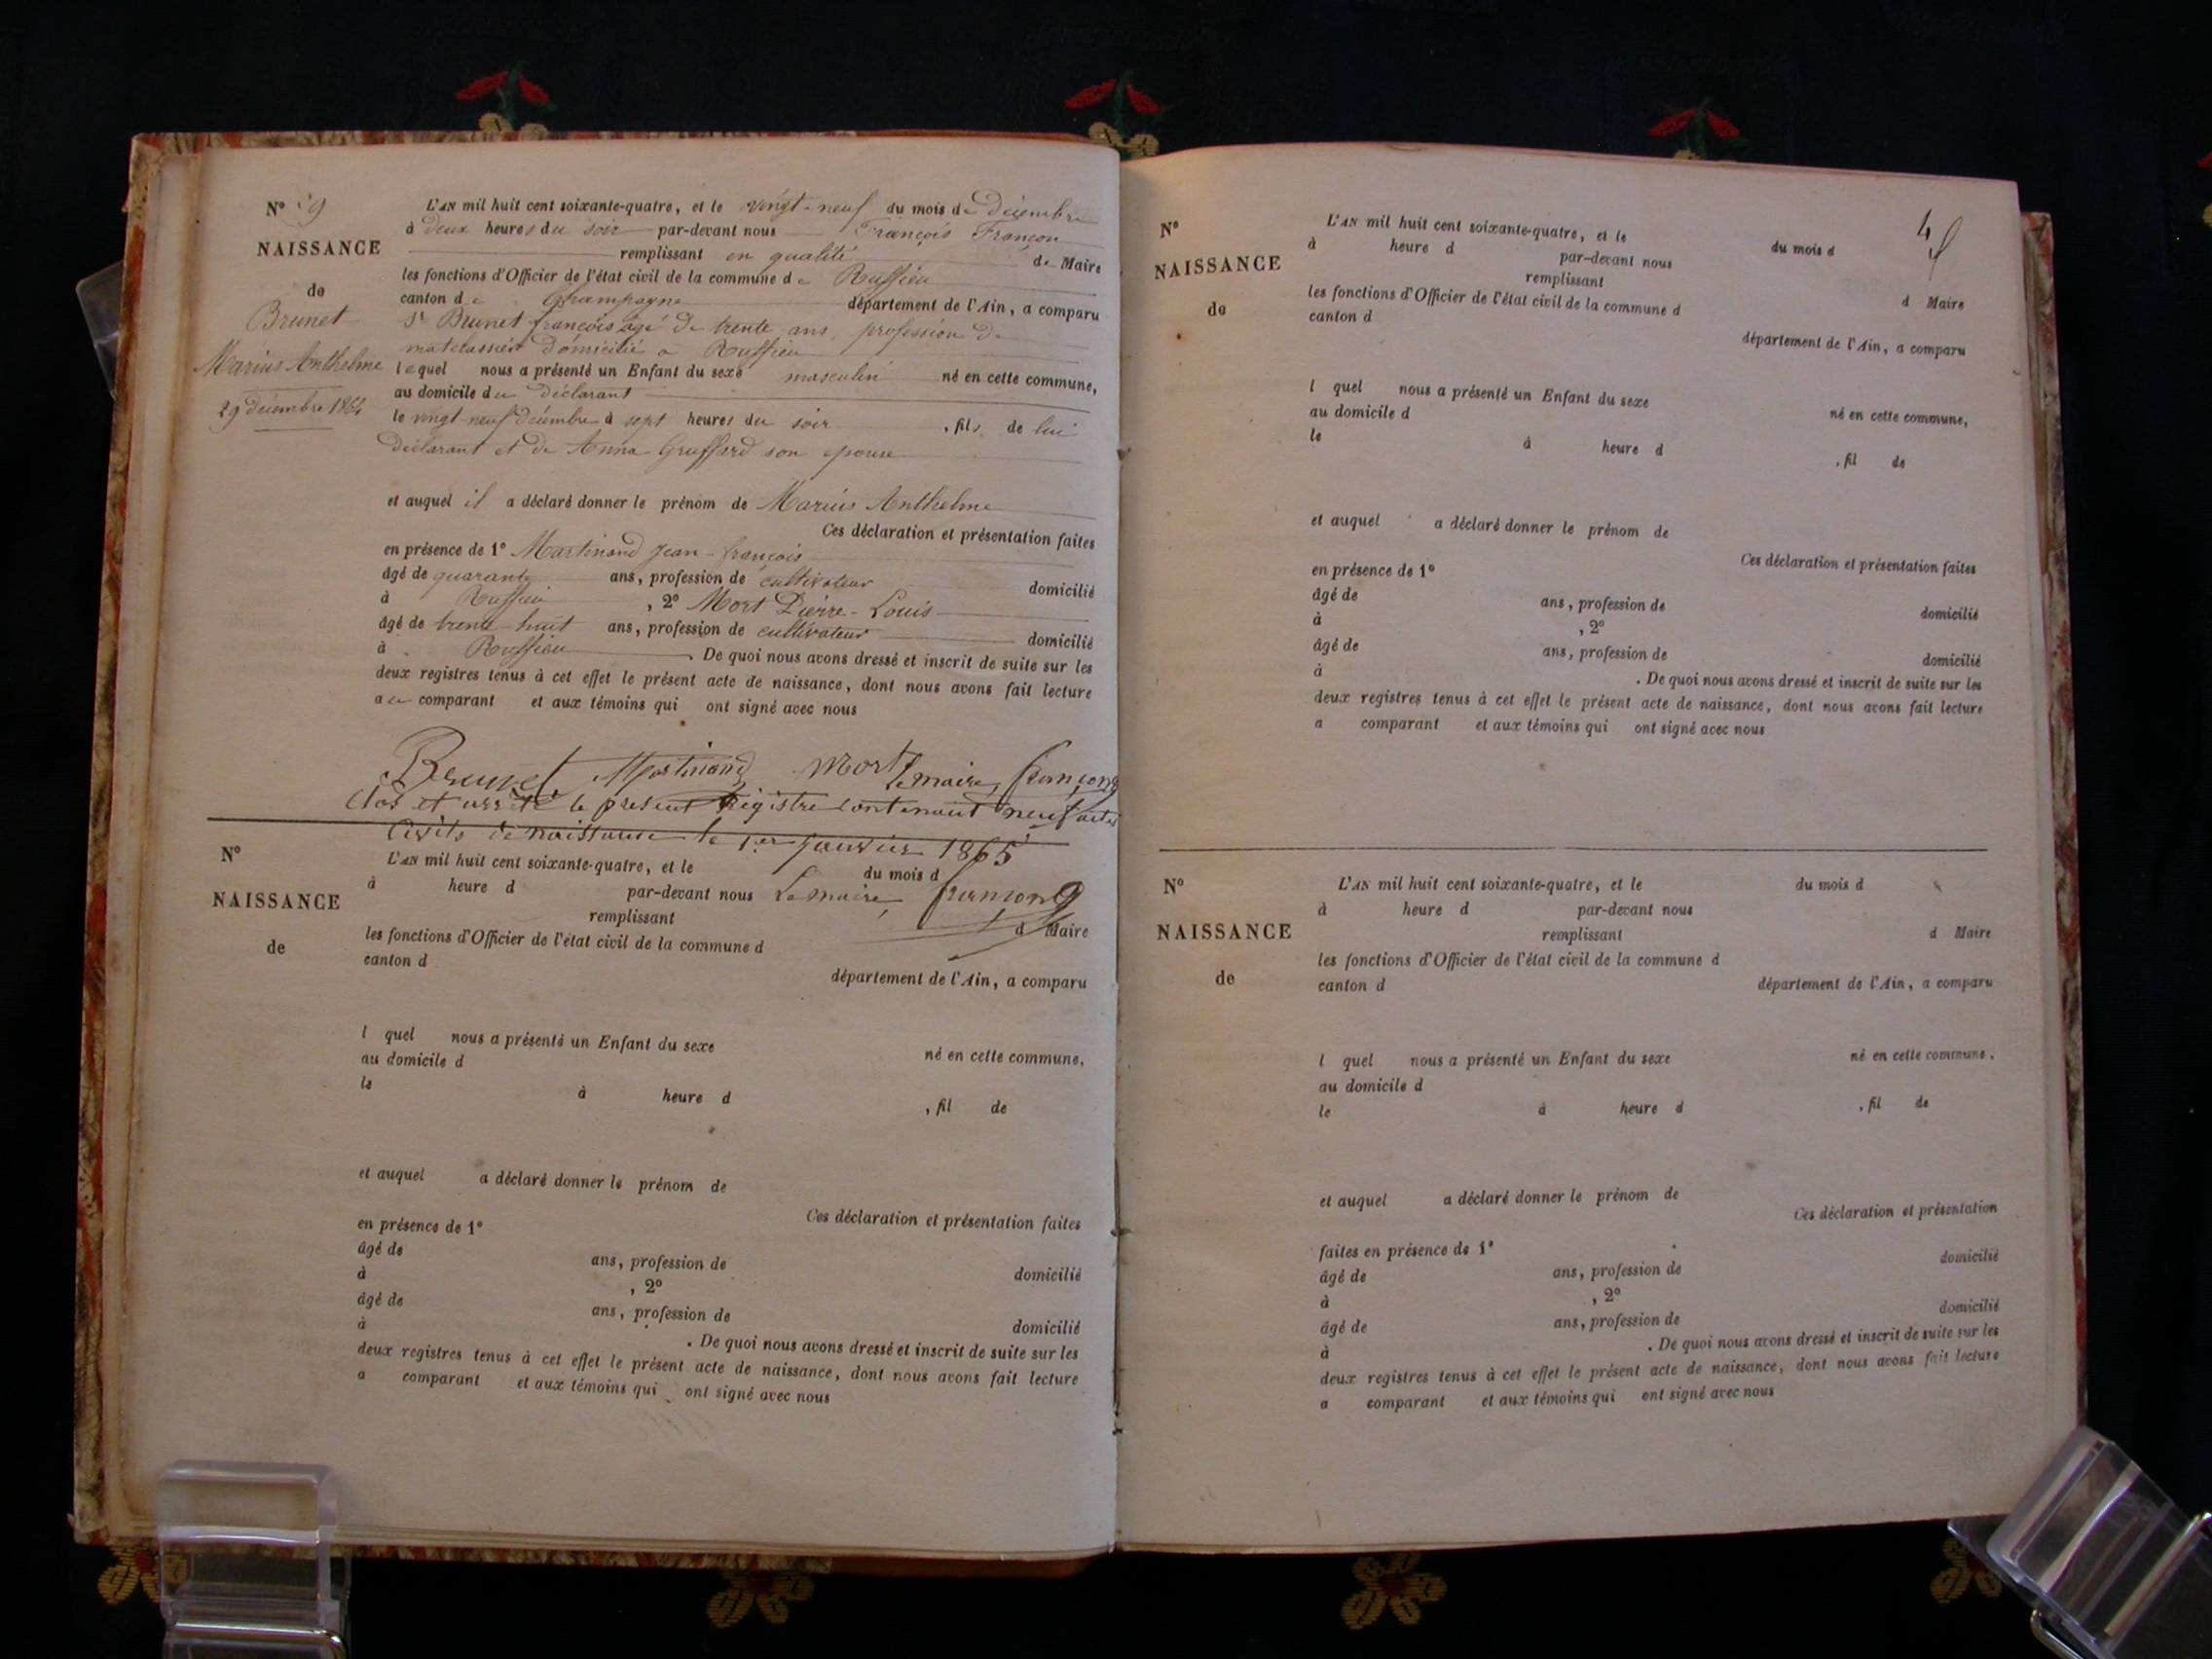 N° 9
NAISSANCE
de
Brunet
Marius Anthelme
29 Décembre 1864
L'AN mil huit cent soixante-quatre, et le vingt-neuf du mois de Décembre
à deux heures du soir par-devant nous François Françon
remplissant en qualité de Maire
les fonctions d'Officier de l'état civil de la commune de Ruffieu
canton de Champagne département de l'Ain, a comparu
Sr Brunet françois âgé de trente ans, profession de
matelassier domicilié à Ruffieu
lequel nous a présenté un Enfant du sexe masculin né en cette commune,
au domicile du déclarant
le vingt-neuf décembre à sept heures du soir , fils de lui
déclarant et de Anna Gruffard son epouse
et auquel il a déclaré donner le prénom de Marius Anthelme
Ces déclaration et présentation faites
en présence de 1° Martinand Jean-françois
âgé de quarante ans, profession de cultivateur domicilié
à Ruffieu , 2° Mort Pierre-Louis
âgé de trente-huit ans, profession de cultivateur domicilié
à Ruffieu . De quoi nous avons dressé et inscrit de suite sur les
deux registres tenus à cet effet le présent acte de naissance, dont nous avons fait lecture
au comparant et aux témoins qui ont signé avec nous
Brunet Martinand Mort Le maire, françon
Clos et arrêté le present Registre contenant neuf actes
Civils de naissance le 1er Janvier 1865
Le maire, françon
N°
NAISSANCE
de
L'AN mil huit cent soixante-quatre, et le du mois d
à heure d par-devant nous
remplissant d Maire
les fonctions d'Officier de l'état civil de la commune d
canton d département de l'Ain, a comparu
l quel nous a présenté un Enfant du sexe né en cette commune,
au domicile d
le à heure d , fil de
et auquel a déclaré donner le prénom de
Ces déclaration et présentation faites
en présence de 1°
âgé de ans, profession de domicilié
à , 2°
âgé de ans, profession de domicilié
à . De quoi nous avons dressé et inscrit de suite sur les
deux registres tenus à cet effet le présent acte de naissance, dont nous avons fait lecture
a comparant et aux témoins qui ont signé avec nous
4
N°
NAISSANCE
de
L'AN mil huit cent soixante-quatre, et le du mois d
à heure d par-devant nous
remplissant d Maire
les fonctions d'Officier de l'état civil de la commune d
canton d département de l'Ain, a comparu
l quel nous a présenté un Enfant du sexe né en cette commune,
au domicile d
le à heure d , fil de
et auquel a déclaré donner le prénom de
Ces déclaration et présentation faites
en présence de 1°
âgé de ans, profession de domicilié
à , 2°
âgé de ans, profession de domicilié
à . De quoi nous avons dressé et inscrit de suite sur les
deux registres tenus à cet effet le présent acte de naissance, dont nous avons fait lecture
a comparant et aux témoins qui ont signé avec nous
N°
NAISSANCE
de
L'AN mil huit cent soixante-quatre, et le du mois d
à heure d par-devant nous
remplissant d Maire
les fonctions d'Officier de l'état civil de la commune d
canton d département de l'Ain, a comparu
l quel nous a présenté un Enfant du sexe né en cette commune,
au domicile d
le à heure d , fil de
et auquel a déclaré donner le prénom de
Ces déclaration et présentation
faites en présence de 1° domicilié
âgé de ans, profession de
à , 2° domicilié
âgé de ans, profession de
à . De quoi nous avons dressé et inscrit de suite sur les
deux registres tenus à cet effet le présent acte de naissance, dont nous avons fait lecture
a comparant et aux témoins qui ont signé avec nous